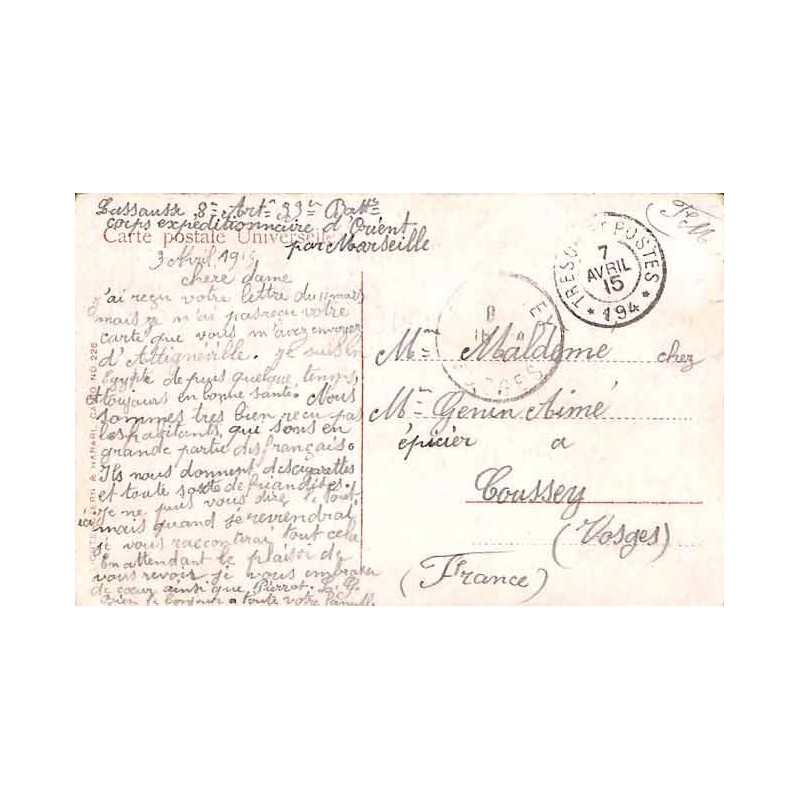 Lassausse 8e Artie 33e Batte
corps expéditionnaire d'Orient
par Marseille
Carte postale Universelle
3 Avril 1915
chere dame
j'ai reçu votre lettre du 11 mars
mais je n'ai pas recu votre
carte que vous m'avez envoyez
d'Attigneville. je suis en
Egypte depuis quelque temps,
et toujours en bonne santé. Nous
sommes tres bien reçu pas
les habitants, qui sons en
grande partie des français.
Ils nous donnent des cigarettes
et toute sorte de friandises.
Je ne puis vous dire le tout
ici mais quand je reviendrai
je vous raconterai tout cela
En attendant le plaisir de
vous revoir je vous embrasse
de cœur ainsi que Pierrot. L. G.
Bien le bonjour a toute votre famille
CAIRO NO 226
F.M
TRESOR ET POSTES
7
AVRIL
15
* 194 *
Mme Maldemé chez
Mr Genin Aimé
épicier a
Coussey
(Vosges)
(France)